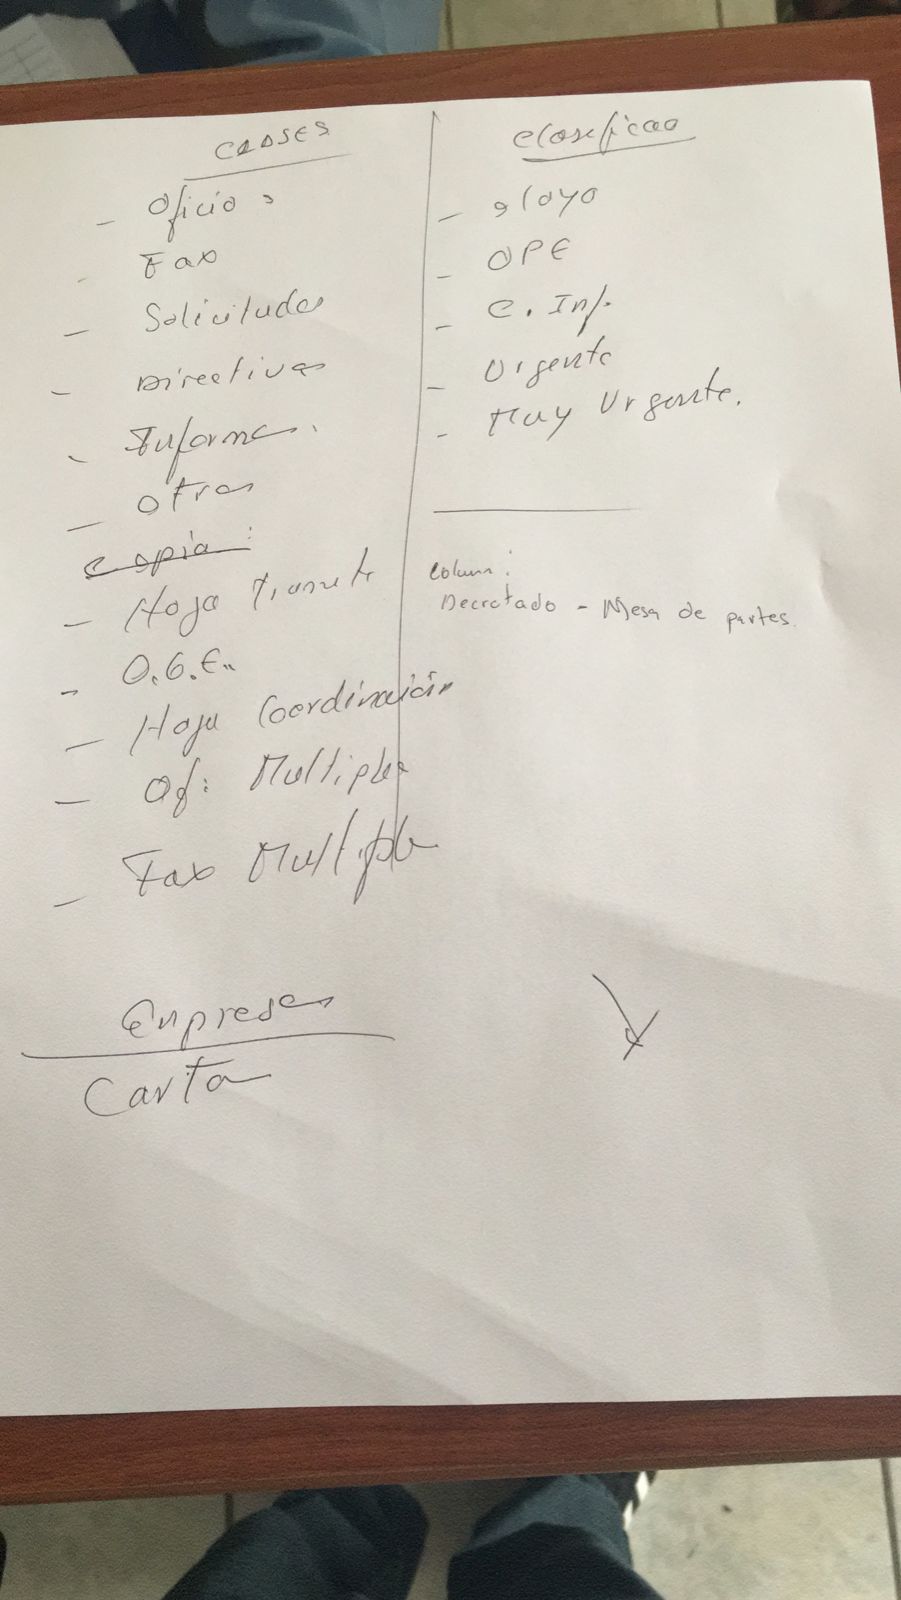 CLASES
- Oficios
- Fax
- Solicitudes
- Directivas
- Informes.
- Otros
Copia:
- Hoja Tramite
- O.G.E.
- Hoja Coordinación
- Of: Multiples
- Fax Multiple
Empresas
Carta
Clasificac
- OPE
- C. Inf.
- Urgente
- Muy Urgente.
Colum:
Decretado - Mesa de partes.